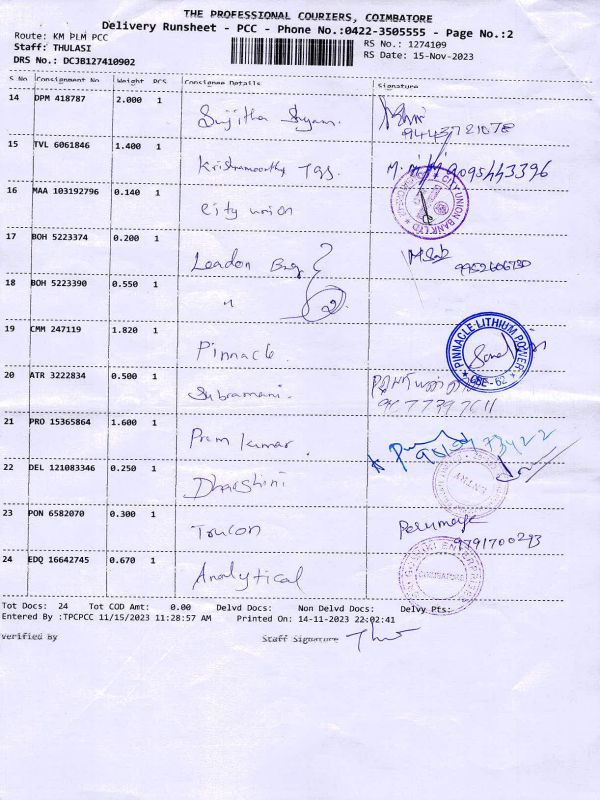 THE PROFESSIONAL COURIERS, COIMBATORE
Delivery Runsheet - PCC - Phone No.:0422-3505555 - Page No.:2
Route: KM PLM PCC
RS No.: 1274109
Staff: THULASI
RS Date: 15-Nov-2023
DRS No.: DCJB127410902
S No Consignment No Weight PCS Consignee Details Signature
14 DPM 418787 2.000 1 Sujitha Shyam.
15 TVL 6061846 1.400 1 Krishnamoorthy TGS. 9095443396
16 MAA 103192796 0.140 1 City union CITY UNION BANK LTD
17 BOH 5223374 0.200 1
18 BOH 5223390 0.550 1 "
19 CMM 247119 1.820 1 Pinnacle. PINNACLE LITHIUM POWER CBE-62
20 ATR 3222834 0.500 1 Subramani.
21 PRO 15365864 1.600 1 Prem Kumar.
22 DEL 121083346 0.250 1 Dharshini
23 PON 6582070 0.300 1 9791700293
24 EDQ 16642745 0.670 1 Analytical
Tot Docs: 24 Tot COD Amt: 0.00 Delvd Docs: Non Delvd Docs: Delvy Pts:
Entered By :TPCPCC 11/15/2023 11:28:57 AM Printed On: 14-11-2023 22:02:41
verified By Staff Signature